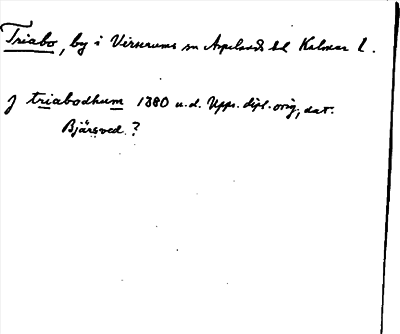 Triabo, by i Virserums sn Aspelands hd Kalmar l.
J triabodhum 1380 u.d. Upps. dipl. orig, dat.
Bjärsved ?